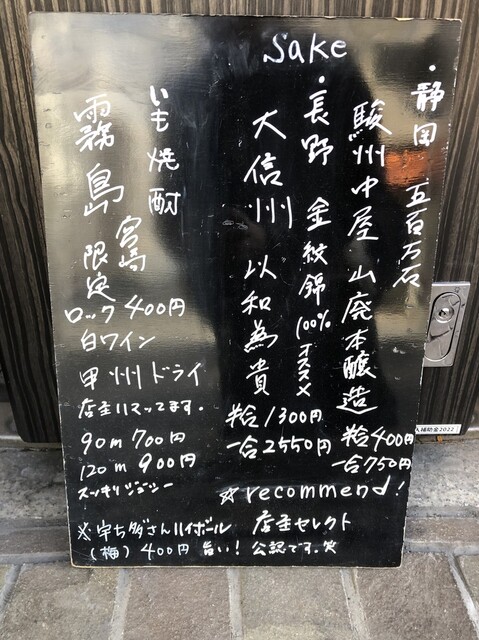 Sake
・静岡 五百万石
駿州中屋 山廃本醸造
半合400円
一合750円
・長野 金紋錦100%オススメ
大信州 以和為貴
半合1300円
一合2550円
☆recommend!
店主セレクト
いも焼酎
霧島 宮崎
限定
ロック400円
白ワイン
甲州ドライ
店主ハマッてます。
90m 700円
120m 900円
スッキリジューシー
※宇ち多゙さんハイボール
(梅) 400円 旨い! 公認です。笑
補助金2022